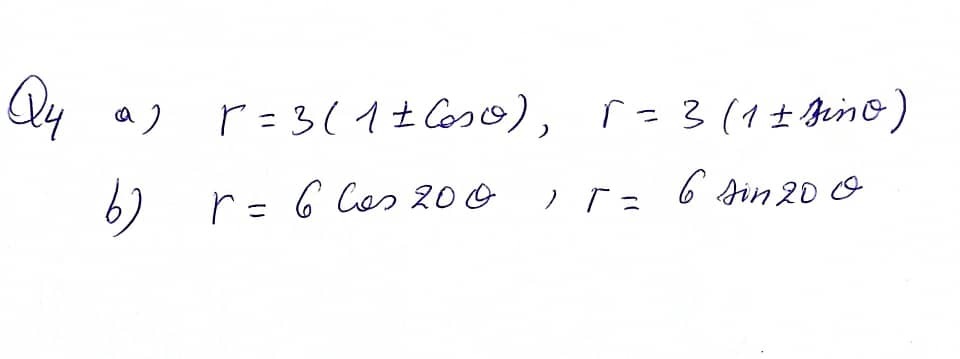 Q4 a) r = 3(1 ± Cosθ), r = 3(1 ± sinθ)
b) r = 6 Cos 20θ, r = 6 sin 20θ